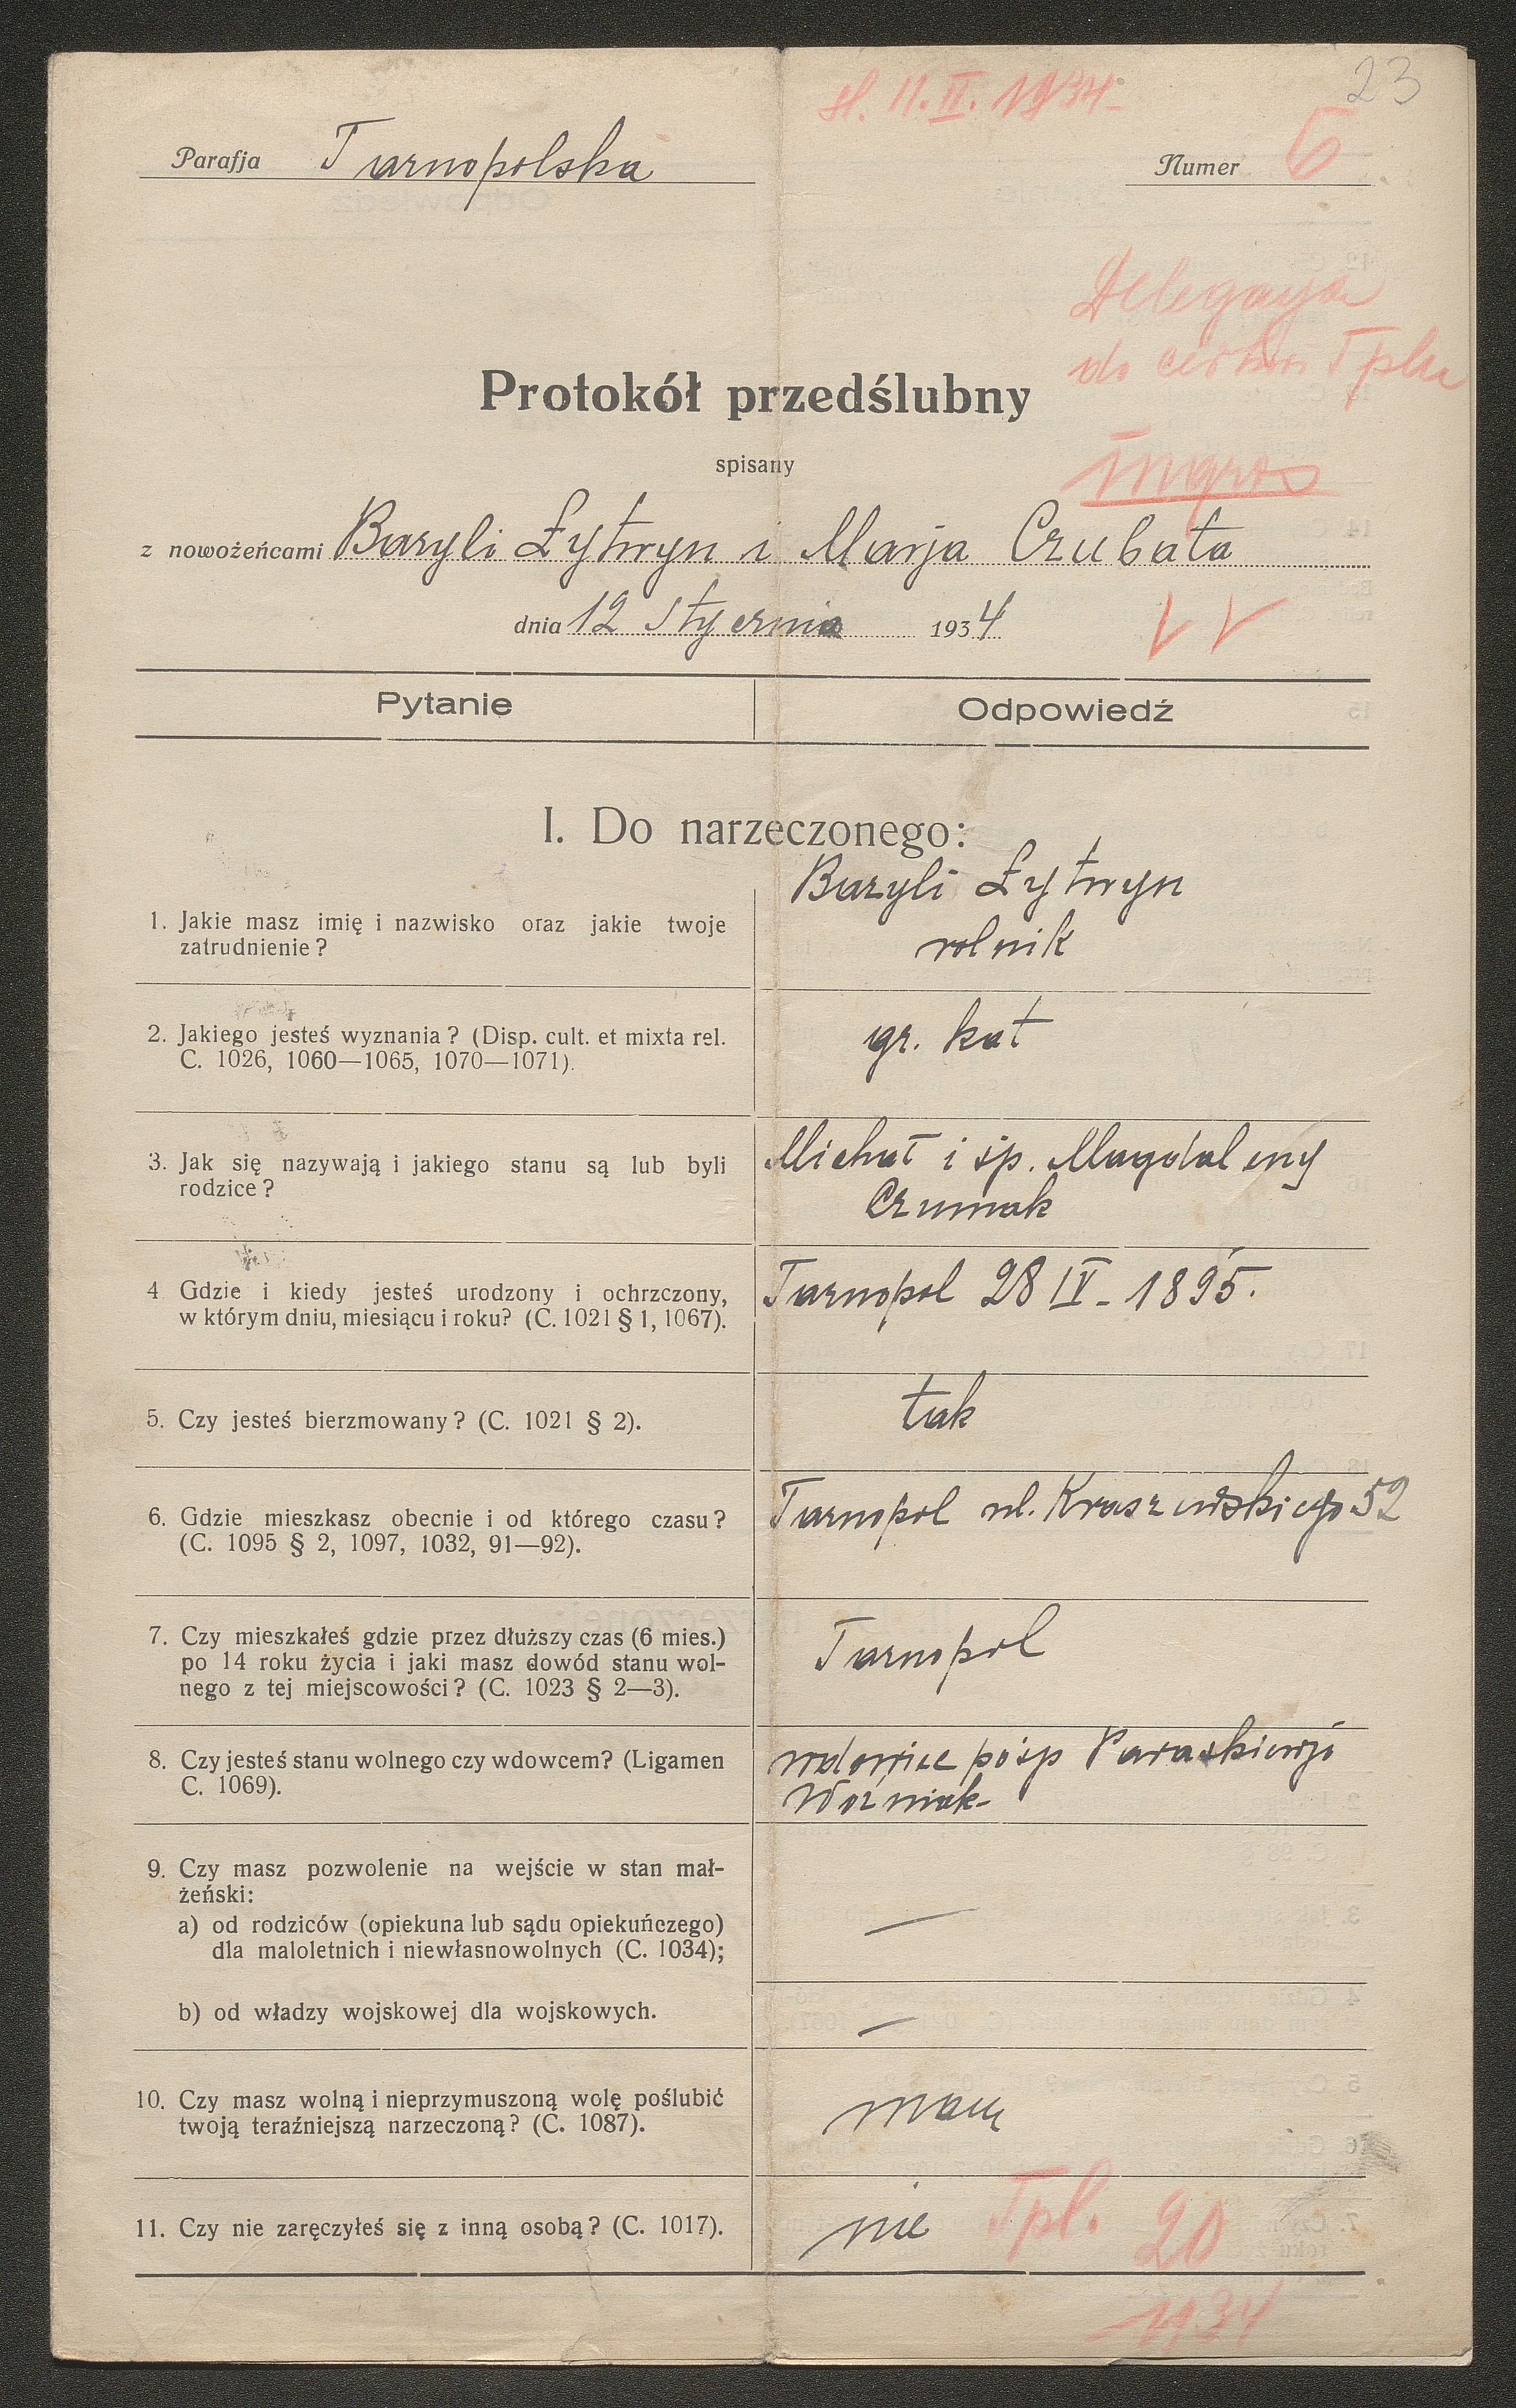 23
sl. 11. II. 1934
Parafja Tarnopolska
Numer 6
Delegacja
do cerkwi Tplu
ingros
Protokół przedślubny
spisany
z nowożeńcami Bazyli Łytwyn i Marja Czubata
dnia 12 stycznia 1934
Pytanie Odpowiedź
I. Do narzeczonego:
Bazyli Łytwyn
1. Jakie masz imię i nazwisko oraz jakie twoje
zatrudnienie?
rolnik
2. Jakiego jesteś wyznania? (Disp. cult. et mixta rel.
C. 1026, 1060—1065, 1070—1071).
gr. kat
3. Jak się nazywają i jakiego stanu są lub byli
rodzice?
Michał i śp. Magdaleny
Czumak
4 Gdzie i kiedy jesteś urodzony i ochrzczony,
w którym dniu, miesiącu i roku? (C. 1021 § 1, 1067).
Tarnopol 28 IV - 1895.
5. Czy jesteś bierzmowany? (C. 1021 § 2).
tak
6. Gdzie mieszkasz obecnie i od którego czasu?
(C. 1095 § 2, 1097, 1032, 91—92).
Tarnopol ul. Kraszewskiego 52
7. Czy mieszkałeś gdzie przez dłuższy czas (6 mies.)
po 14 roku życia i jaki masz dowód stanu wol-
nego z tej miejscowości? (C. 1023 § 2—3).
Tarnopol
8. Czy jesteś stanu wolnego czy wdowcem? (Ligamen
C. 1069).
wdowiec po śp Paraskiewji
Woźniak-
9. Czy masz pozwolenie na wejście w stan mał-
żeński:
a) od rodziców (opiekuna lub sądu opiekuńczego)
dla maloletnich i niewłasnowolnych (C. 1034);
—
b) od władzy wojskowej dla wojskowych.
—
10. Czy masz wolną i nieprzymuszoną wolę poślubić
twoją teraźniejszą narzeczoną? (C. 1087).
mam
11. Czy nie zaręczyłeś się z inną osobą? (C. 1017).
nie
Tpl. 20
1934